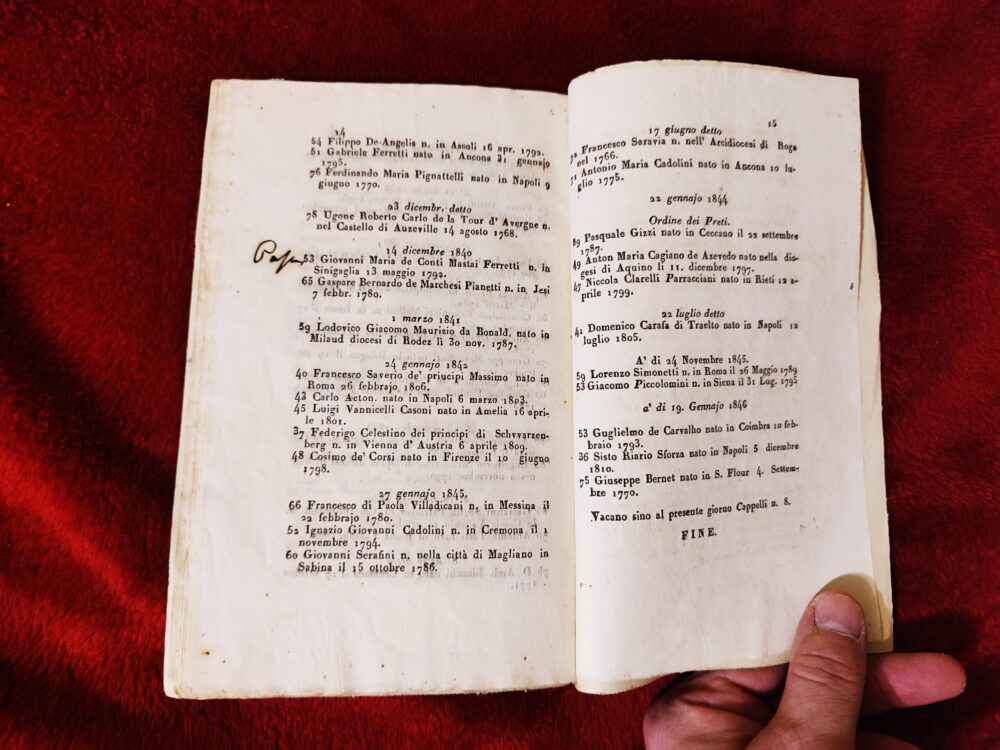 14
54 Filippo De-Angelis n. in Ascoli 16 apr. 1792.
51 Gabriele Ferretti nato in Ancona 31 gennajo
1795.
76 Ferdinando Maria Pignattelli nato in Napoli 9
giugno 1770.
23 dicembr. detto
78 Ugone Roberto Carlo de la Tour d' Avergne n.
nel Castello di Auzeville 14 agosto 1768.
14 dicembre 1840
Papa
53 Giovanni Maria de Conti Mastai Ferretti n. in
Sinigaglia 13 maggio 1792.
65 Gaspare Bernardo de Marchesi Pianetti n. in Jesi
7 febbr. 1780.
1 marzo 1841
59 Lodovico Giacomo Maurizio da Bonald. nato in
Milaud diocesi di Rodez lì 30 nov. 1787.
24 gennajo 1842
40 Francesco Saverio de' principi Massimo nato in
Roma 26 febbrajo 1806.
43 Carlo Acton. nato in Napoli 6 marzo 1803.
45 Luigi Vannicelli Casoni nato in Amelia 16 apri-
le 1801.
37 Federigo Celestino dei principi di Schvvarzen-
berg n. in Vienna d' Austria 6 aprile 1809.
48 Cosimo de' Corsi nato in Firenze il 10 giugno
1798.
27 gennajo 1845.
66 Francesco di Paola Villadicani n. in Messina il
22 febbrajo 1780.
52 Ignazio Giovanni Cadolini n. in Cremona il 1
novembre 1794.
60 Giovanni Serafini n. nella città di Magliano in
Sabina il 15 ottobre 1786.
15
17 giugno detto
Francesco Saravia n. nell' Arcidiocesi di Roga
nel 1766.
71 Antonio Maria Cadolini nato in Ancona 10 lu-
glio 1775.
22 gennajo 1844
Ordine dei Preti.
Pasquale Gizzi nato in Ceccano il 22 settembre
1787.
49 Anton Maria Cagiano de Azevedo nato nella dio-
gesi di Aquino lì 11. dicembre 1797.
47 Niccola Clarelli Parracciani nato in Rieti 12 a-
prile 1799.
22 luglio detto
41 Domenico Carafa di Traelto nato in Napoli 12
luglio 1805.
A' di 24 Novembre 1845.
59 Lorenzo Simonetti n. in Roma il 26 Maggio 1789
53 Giacomo Piccolomini n. in Siena il 31 Lug. 1795
a' di 19. Gennajo 1846
53 Guglielmo de Carvalho nato in Coimbra 10 feb-
braio 1793.
36 Sisto Riario Sforza nato in Napoli 5 dicembre
1810.
75 Giuseppe Bernet nato in S. Flour 4. Settem-
bre 1770.
Vacano sino al presente giorno Cappelli n. 8.
FINE.